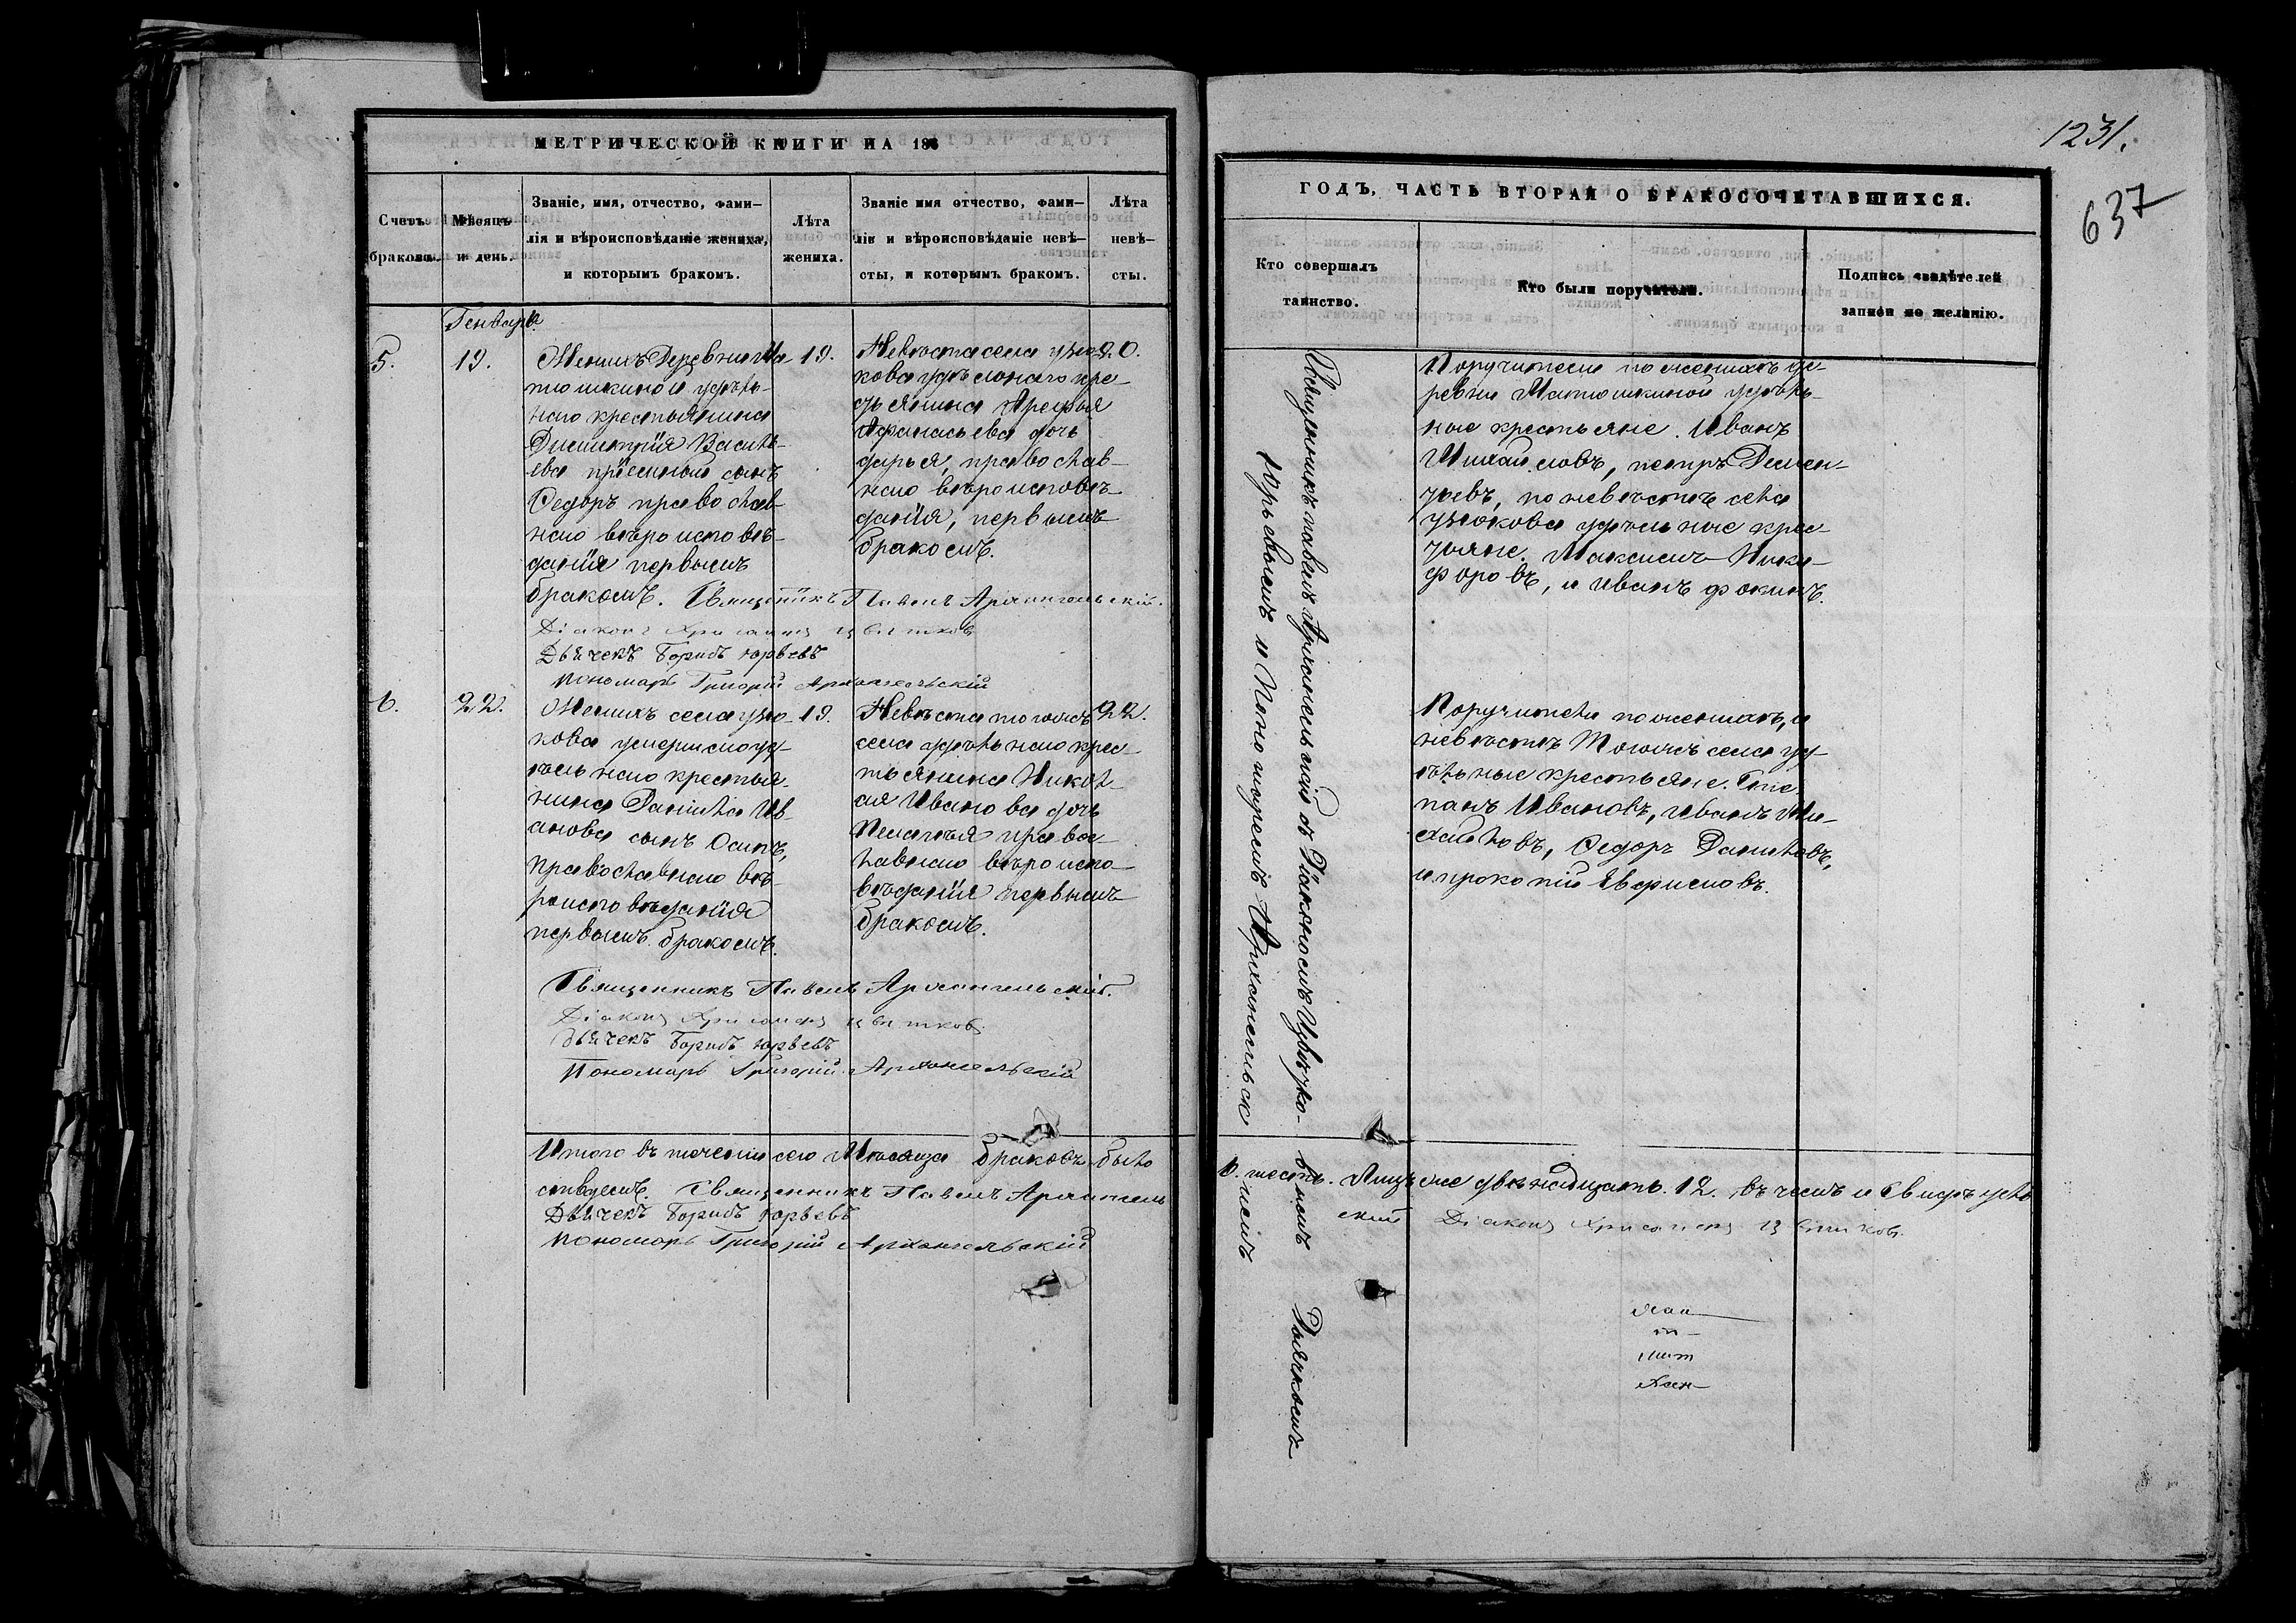 МЕТРИЧЕСКОЙ КНИГИ НА 186
Счетъ браковъ.
Мѣсяцъ и день.
Званіе, имя, отчество, фами-
лія и вѣроисповѣданіе жениха,
и которымъ бракомъ.
Лѣта
жениха.
Званіе имя отчество, фами-
лія и вѣроисповѣданіе невѣ-
сты, и которымъ бракомъ.
Лѣта
невѣ-
сты.
Генваря.
5.
19.
Женихъ Деревни Ма-
тюшкиной удѣль-
наго крестьянина
Дмитрія Василь-
ева пріемный сынъ
Ѳедоръ православ-
наго вѣроисповѣ-
данія первымъ
бракомъ.
19.
Невѣста села Узю-
кова удѣльнаго кре-
стьянина Арефья
Афанасьева дочь
Дарья, православ-
наго вѣроисповѣ-
данія, первымъ
бракомъ.
20.
Священникъ Павелъ Архангельскій.
Діаконъ Хрисанѳъ Цвѣтковъ
Дьячекъ Борисъ Юрьевъ
Пономарь Григорій Архангельскій
6.
22.
Женихъ села Узю-
кова умершаго уд-
ѣльнаго крестья-
нина Данила Ив-
анова сынъ Осипъ,
православнаго вѣ-
роисповѣданія
первымъ бракомъ.
19.
Невѣста того жъ
села удѣльнаго крес-
тьянина Никол-
ая Иванова дочь
Пелагѣя правос-
лавнаго вѣроиспо-
вѣданія первымъ
бракомъ.
22.
Священникъ Павелъ Архангельскій.
Діаконъ Хрисанѳъ Цвѣтковъ
Дьячекъ Борисъ Юрьевъ
Пономарь Григорій Архангельскій
Итого въ теченіи сего Мѣсяца браковъ было
Священникъ Павелъ Архангель
Дьячекъ Борисъ Юрьевъ
Пономарь Григорій Архангельскій
1231.
637
ГОДЪ, ЧАСТЬ ВТОРАЯ О БРАКОСОЧЕТАВШИХСЯ.
Кто совершалъ
таинство.
Кто были поручители.
Подпись свидѣтелей
записи по желанію.
Священникъ Павелъ Архангельскій съ Діакономъ Цвѣтко-
вымъ Дьячкомъ
Юрьевымъ и Пономаремъ Архангельск
имъ
Поручители по женихѣ де-
ревни Матюшкиной удѣль-
ные крестьяне. Иванъ
Михайловъ, Петръ Демен-
тьевъ, по невѣстѣ села
Узюкова удѣльные крес-
тьяне. Максимъ Ники-
форовъ, и Иванъ Фокинъ.
Поручители по женихѣ, и
невѣстѣ Тогожъ села уд-
ѣльные крестьяне. Сте-
панъ Ивановъ, Иванъ Ми-
хайловъ, Ѳедоръ Даниловъ,
и Прокопій Ефремовъ.
6. шесть. Лицъ же двенадцать. 12. въ чемъ и Свидѣтель
скій Діаконъ Хрисанѳъ Цвѣтковъ